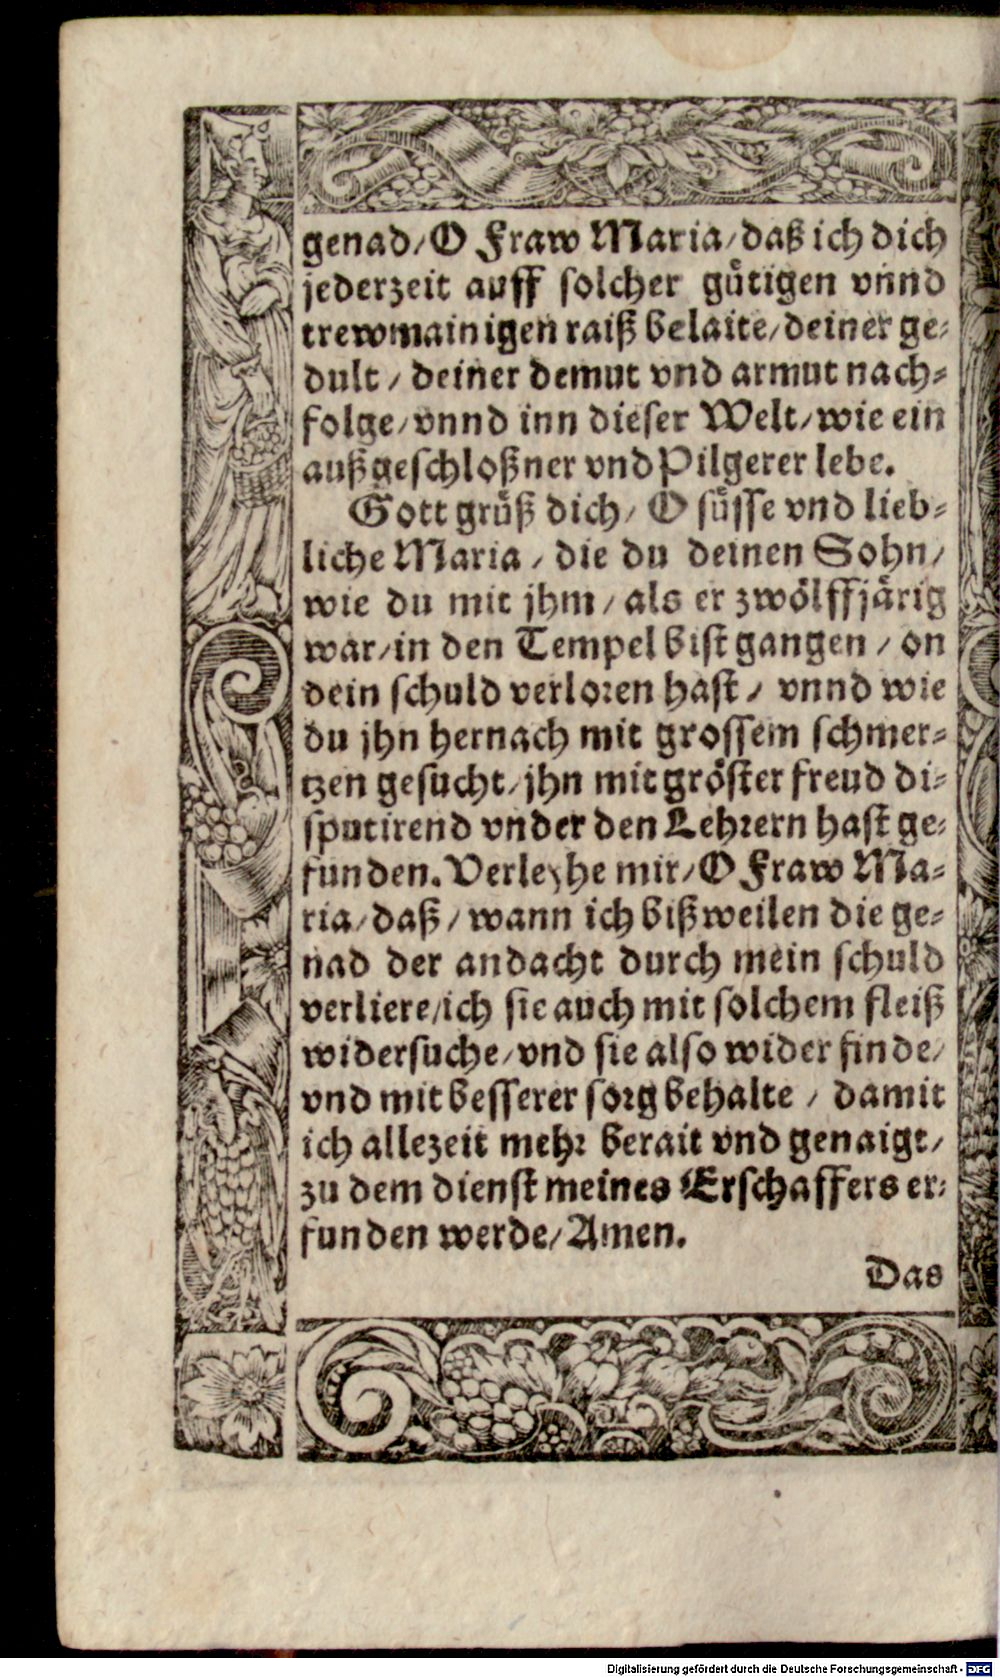 genad/ O Fraw Maria/ daß ich dich
jederzeit auff solcher gütigen vnnd
trewmainigen raiß belaite/ deiner ge-
dult / deiner demut vnd armut nach-
folge/ vnnd inn dieser Welt/ wie ein
außgeschloßner vnd Pilgerer lebe.
Gott grüß dich/ O süsse vnd lieb-
liche Maria / die du deinen Sohn/
wie du mit jhm / als er zwölffjärig
war/ in den Tempel bist gangen / on
dein schuld verloren hast / vnnd wie
du jhn hernach mit grossem schmer-
tzen gesucht/ jhn mit gröster freud di-
sputirend vnder den Lehrern hast ge-
funden. Verleyhe mir/ O Fraw Ma-
ria/ daß / wann ich bißweilen die ge-
nad der andacht durch mein schuld
verliere/ ich sie auch mit solchem fleiß
widersuche/ vnd sie also wider finde/
vnd mit besserer sorg behalte / damit
ich allezeit mehr berait vnd genaigt/
zu dem dienst meines Erschaffers er-
funden werde/ Amen.
Das
Digitalisierung gefördert durch die Deutsche Forschungsgemeinschaft - DFG